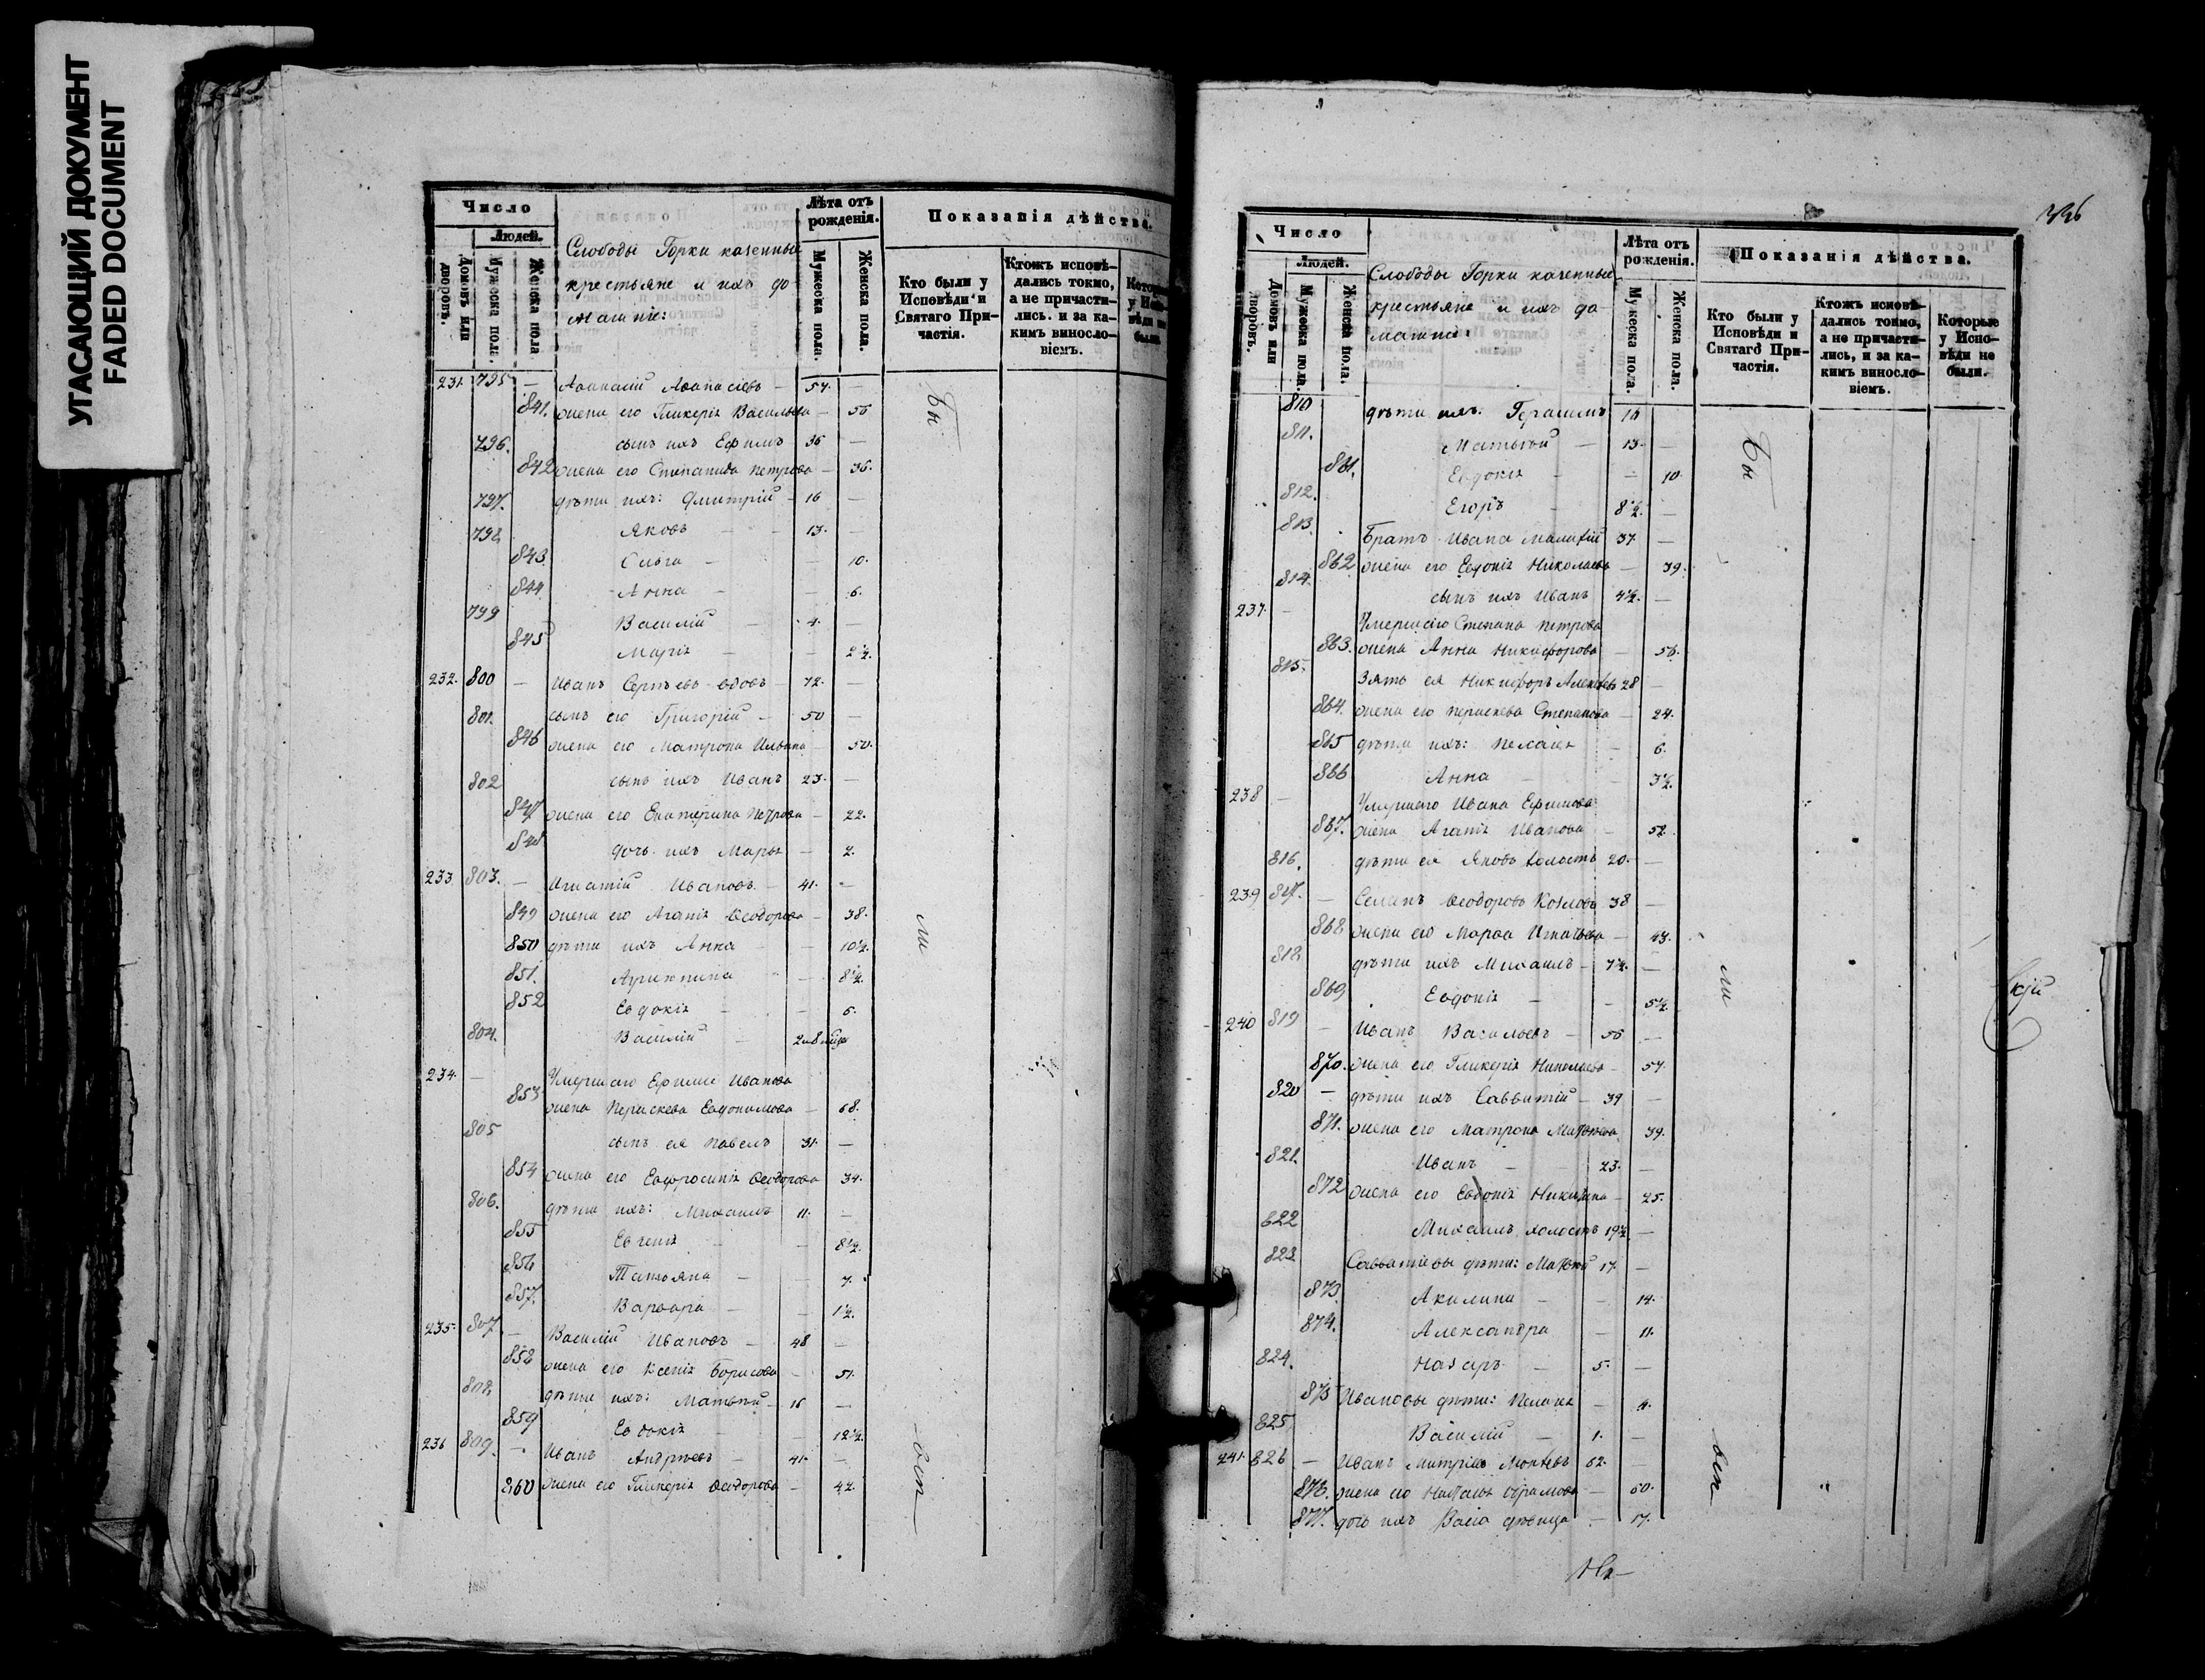 УГАСАЮЩИЙ ДОКУМЕНТ
FADED DOCUMENT
Число
Людей.
Домовъ или дворовъ.
Мужеска пола.
Женска пола
Слободы Горки казенные
крестьяне и ихъ до
машніе:
Лѣта отъ рожденія.
Мужеска пола.
Женска пола.
Показанія дѣйства.
Кто были у Исповѣди и Святаго Причастія.
Ктожъ исповѣдались токмо, а не причастились. и за какимъ винословіемъ.
231. 795 — Аѳанасій Аѳанасіевъ — 57. —
841. жена его Гликерія Васильева — 56
796. сынъ ихъ Ефимъ 36 —
842 жена его Степанида Петрова — 36.
797. дѣти ихъ: Дмитрій — 16 —
798 Яковъ — 13. —
843 Ольга — — 10.
844 Анна — — 6.
799 Василій — 4. —
845 Марія — — 2½.
232. 800 — Иванъ Сергѣевъ вдовъ — 72. —
801. сынъ его Григорій — 50 —
846 жена его Матрона Ильина — 50.
802 сынъ ихъ Иванъ 23. —
847 жена его Екатерина Петрова — 22.
848 дочь ихъ Марья — 2.
233 803. — Игнатій Ивановъ — 41. —
849 жена его Агапія Ѳеодорова — 38.
850 дѣти ихъ Анна — — 10½.
851. Агрипина — — 8½.
852 Евдокія — — 6.
804. Василій — 2 м 8 мѣся
234. — Умершаго Ефима Иванова
853 жена Параскева Евдокимова — 68.
805 сынъ ея Павелъ 31. —
854 жена его Евфросинія Ѳеодорова 34.
806. дѣти ихъ: Михаилъ 11. —
855 Евгенія — — 8½.
856 Татьяна — — 7.
857. Варвара — — 1½.
235. 807. — Василій Ивановъ — 48 —
858 жена его Ксенія Борисова — 51.
808. дѣти ихъ: Матвѣй — 16 —
859 Евдокія — — 12½.
236 809. — Иванъ Андреевъ — 41. —
860 жена его Гликерія Ѳеодорова — 42.
Бы
ли
вси
336
Число
Людей.
Домовъ или дворовъ.
Мужеска пола.
Женска пола.
Слободы Горки казенные
крестьяне и ихъ до
машніе:
Лѣта отъ рожденія.
Мужеска пола.
Женска пола.
Показанія дѣйства.
Кто были у Исповѣди и Святаго Причастія.
Ктожъ исповѣдались токмо, а не причастились, и за какимъ винословіемъ.
Которые у Исповѣди не были.
810 дѣти ихъ: Герасимъ 16
811. Матвѣй — 13. —
861. Евдокія — — 10
812. Егоръ — 8½. —
813. Братъ Ивана 37. —
862 жена его Евдокія Николаева — 39.
814. сынъ ихъ Иванъ 4½. —
237. — Умершаго Степана Петрова
863. жена Анна Никифорова — 56.
815. Зять ея Никифоръ Алексѣевъ 28 —
864. жена его Параскева Степанова — 24.
865 дѣти ихъ: Пелагея — 6.
866 Анна — — 3½.
238 — Умершаго Ивана Ефимова
867. жена Агапія Иванова — 52
816. дѣти ея Яковъ холостъ 20. —
239 817. — Ѳеодоровъ Козловъ 38 —
868 жена его Марѳа Игнатьева — 43.
818 дѣти ихъ Михаилъ — 7½. —
869 Евдокія — — 5½.
240 819 — Иванъ Васильевъ — 56 —
870. жена его Гликерія Николаева — 57.
820 — дѣти ихъ Савватій — 39 —
871. жена его Матрона Матвѣева 39.
821. Иванъ — 23. —
872 жена его Евдокія Никитина — 25.
822 Михаилъ холостъ 19½ —
823. Савватіевы дѣти: Матвѣй 17. —
873. Акилина — — 14.
874. Александра — 11.
824. Назаръ — 5. —
875 Ивановы дѣти: Пелагея — 4.
825 Василій — 1. —
241. 826 — Иванъ Митріевъ 62. —
876. жена его Наталья — 60.
877. дочь ихъ Васса дѣвица — 17.
Бы
ли
вси
кій